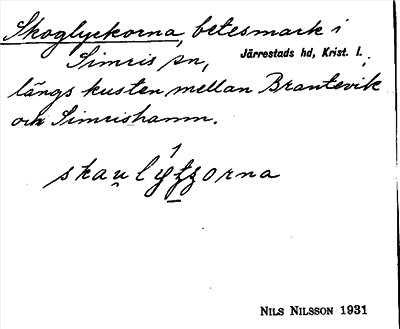 Skoglyckorna, betesmark i
Simris sn, Järrestads hd, Krist. l.,
längs kusten mellan Brantevik
och Simrishamn.
skau̯lýt̯z̯orna
NILS NILSSON 1931